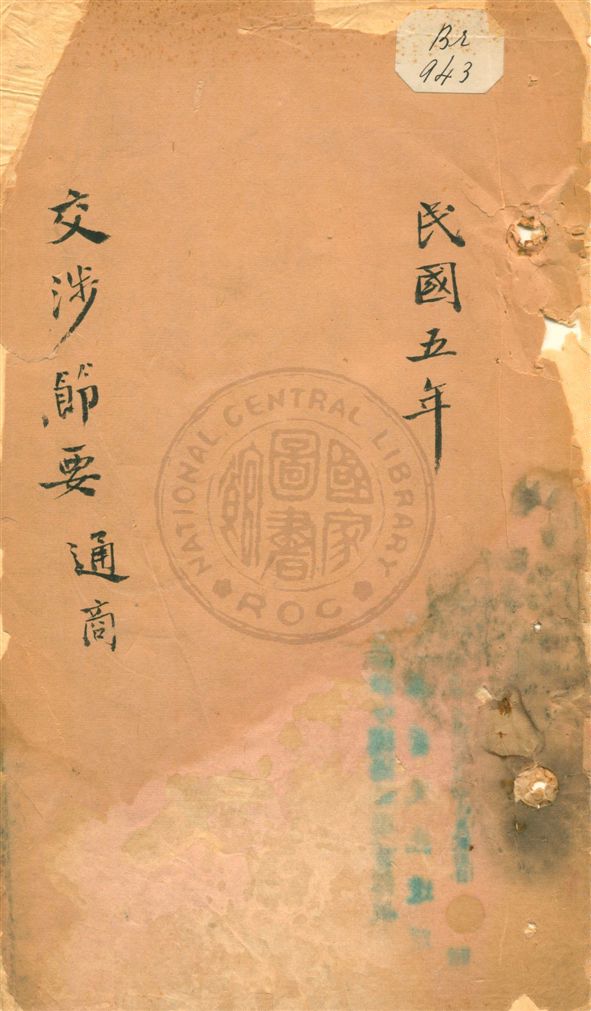 Br
943
民國五年
交涉節要 通商
NATIONAL CENTRAL LIBRARY
國家圖書館
ROC